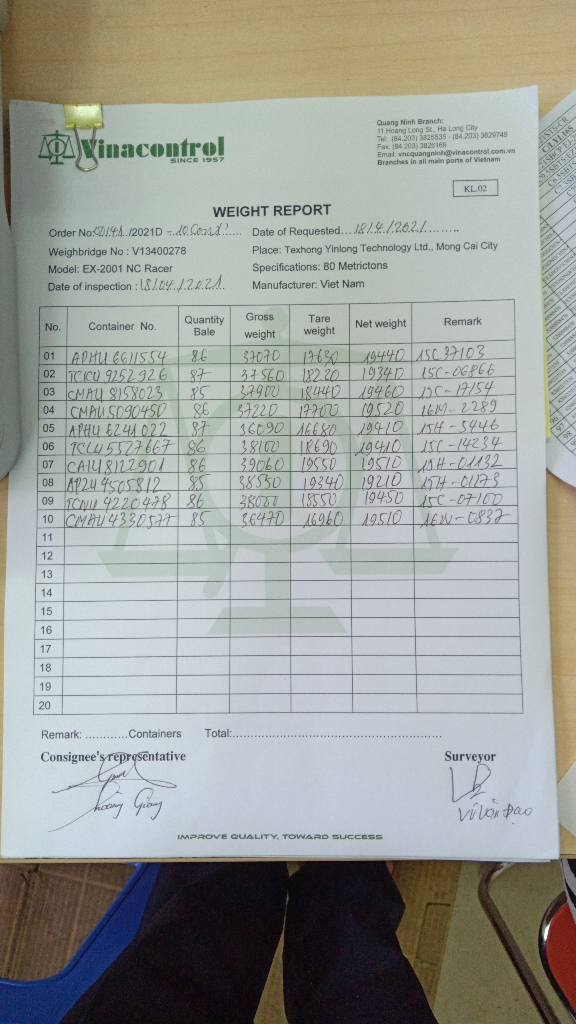 Vinacontrol
SINCE 1957
Quang Ninh Branch:
11 Hoang Long St., Ha Long City
Tel: (84.203) 3825535 - (84.203) 3829749
Fax: (84.203) 3826169
Email: vncquangninh@vinacontrol.com.vn
Branches in all main ports of Vietnam
KL.02
WEIGHT REPORT
Order No: /2021D - 10 Cont! Date of Requested... 18/4/2021
Weighbridge No : V13400278 Place: Texhong Yinlong Technology Ltd., Mong Cai City
Model: EX-2001 NC Racer Specifications: 80 Metrictons
Date of inspection : 18/04/2021 Manufacturer: Viet Nam
No. Container No. Quantity Bale Gross weight Tare weight Net weight Remark
01 APHU 6611554 86 37070 17630 19440 15C 37103
02 TCKU 9252926 87 37560 18220 19340 15C-06866
03 CMAU 8158023 85 37900 18440 19460 15C-17154
04 CMAU 5090450 86 37220 17700 19520 16M-2289
05 APHU 6241022 87 36090 16680 19410 15H-5446
06 TCLU 5527667 86 38100 18690 19410 15C-14234
07 CAIU 8122901 86 39060 19550 19510 15H-01132
08 APZU 4505812 85 38550 19340 19210 15H-01173
09 4220478 86 38000 18550 19450 15C-07100
10 CMAU 4330577 85 36470 16960 19510 16N-0837
11
12
13
14
15
16
17
18
19
20
Remark: ............Containers Total:
Consignee's representative Surveyor
Hoàng Giang
Vũ Văn Đạo
IMPROVE QUALITY, TOWARD SUCCESS